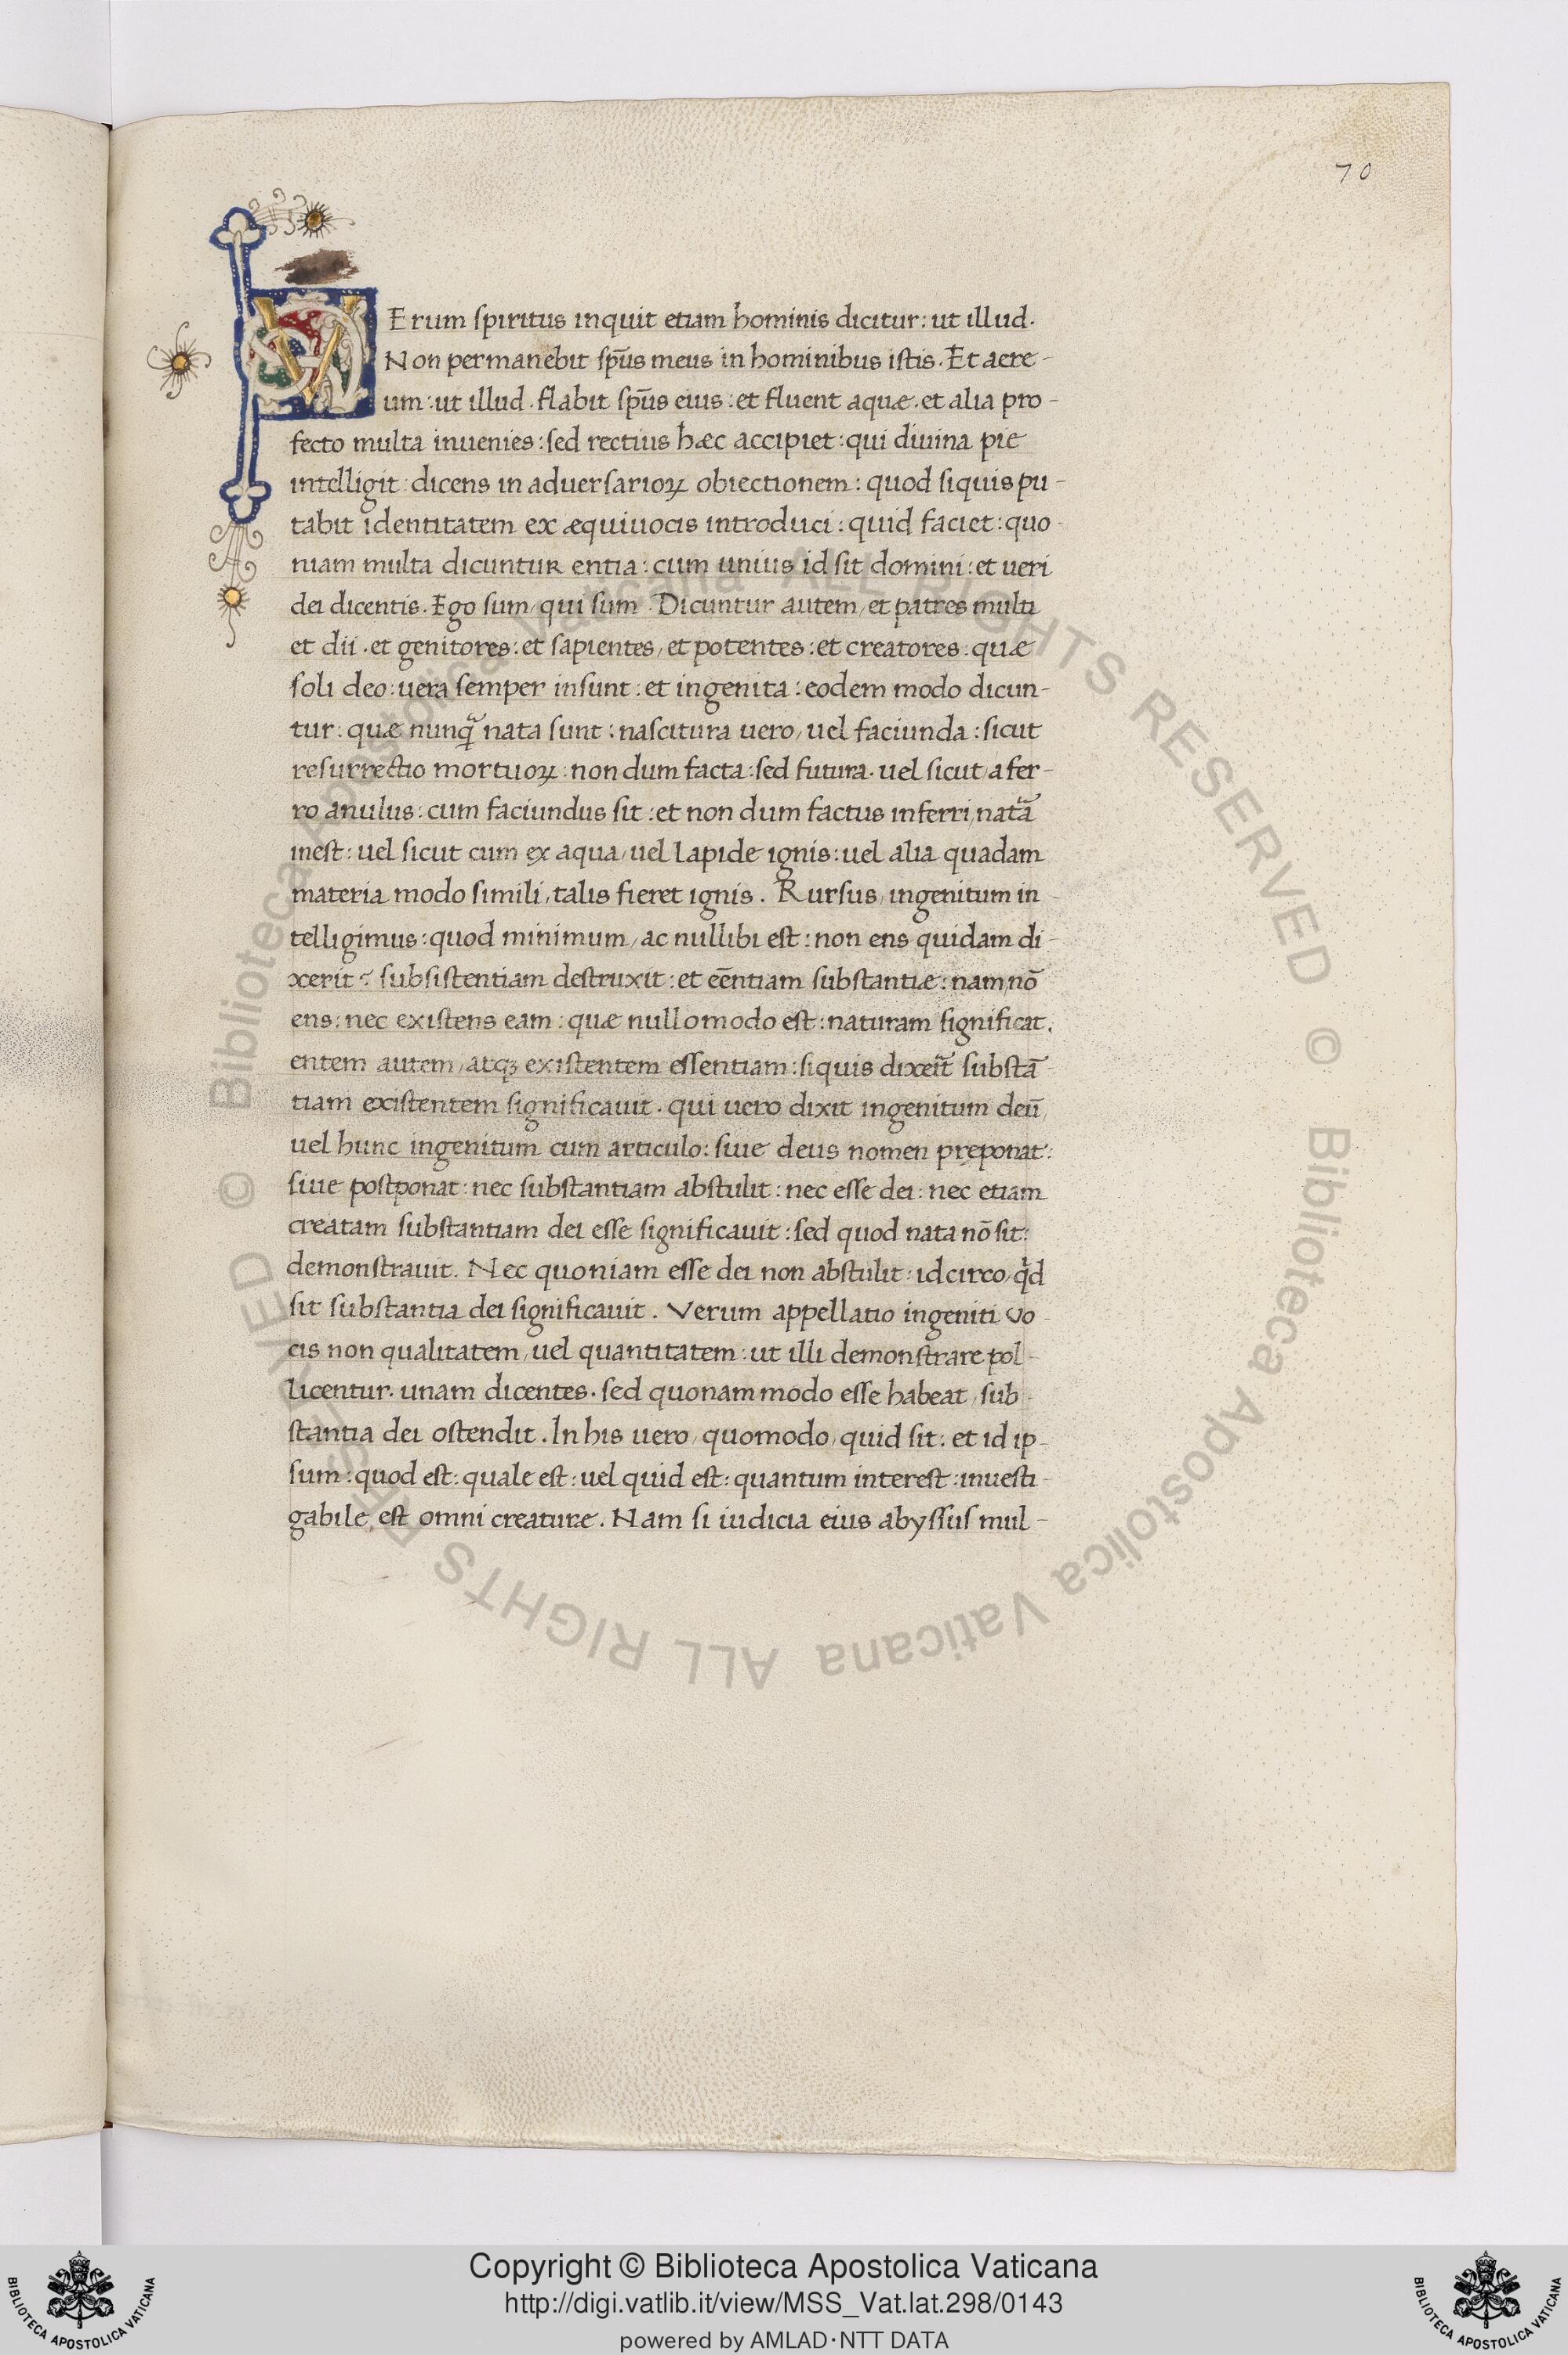 70
VErum spiritus inquit etiam hominis dicitur: ut illud.
Non permanebit sp̄us meus in hominibus istis. Et aere-
um: ut illud. flabit sp̄us eius: et fluent aquæ. et alia pro-
fecto multa inuenies: sed rectius hæc accipiet: qui diuina pie
intelligit: dicens in aduersarioꝝ obiectionem: quod siquis pu-
tabit identitatem ex æquiuocis introduci: quid faciet: quo-
niam multa dicuntur entia: cum unius id sit domini: et ueri
dei dicentis. Ego sum, qui sum. Dicuntur autem, et patres multi
et dii. et genitores: et sapientes, et potentes: et creatores: quæ
soli deo: uera semper insunt: et ingenita: eodem modo dicun-
tur: quæ nunq̃ nata sunt: nascitura uero, uel faciunda: sicut
resurrectio mortuoꝝ: non dum facta: sed futura. uel sicut, a fer-
ro anulus: cum faciundus sit: et non dum factus in ferri, natã
inest: uel sicut cum ex aqua, uel lapide ignis: uel alia quadam
materia modo simili, talis fieret ignis. Rursus, ingenitum in-
telligimus: quod minimum, ac nullibi est: non ens quidam di-
xerit? subsistentiam destruxit: et eēntiam substantiæ: nam, nō
ens: nec existens eam: quæ nullo modo est: naturam significat.
entem autem, atqꝫ existentem essentiam: siquis dixeĩt substā-
tiam existentem significauit. qui uero dixit ingenitum deū,
uel hunc ingenitum cum articulo: siue deus nomen pręponat:
siue postponat: nec substantiam abstulit: nec esse dei: nec etiam
creatam substantiam dei esse significauit: sed quod nata nō sit:
demonstrauit. Nec quoniam esse dei non abstulit: idcirco, qd̓
sit substantia dei significauit. Verum appellatio ingeniti uo-
cis non qualitatem, uel quantitatem: ut illi demonstrare pol-
licentur. unam dicentes. sed quonam modo esse habeat, sub-
stantia dei ostendit. In his uero, quomodo, quid sit: et id ip-
sum: quod est: quale est: uel quid est: quantum interest: inuesti-
gabile, est omni creature. Nam si iudicia eius abyssus mul-
© Biblioteca Apostolica Vaticana ALL RIGHTS RESERVED © Biblioteca Apostolica Vaticana ALL RIGHTS RESERVED
Copyright © Biblioteca Apostolica Vaticana
http://digi.vatlib.it/view/MSS_Vat.lat.298/0143
powered by AMLAD·NTT DATA
BIBLIOTECA APOSTOLICA VATICANA
BIBLIOTECA APOSTOLICA VATICANA